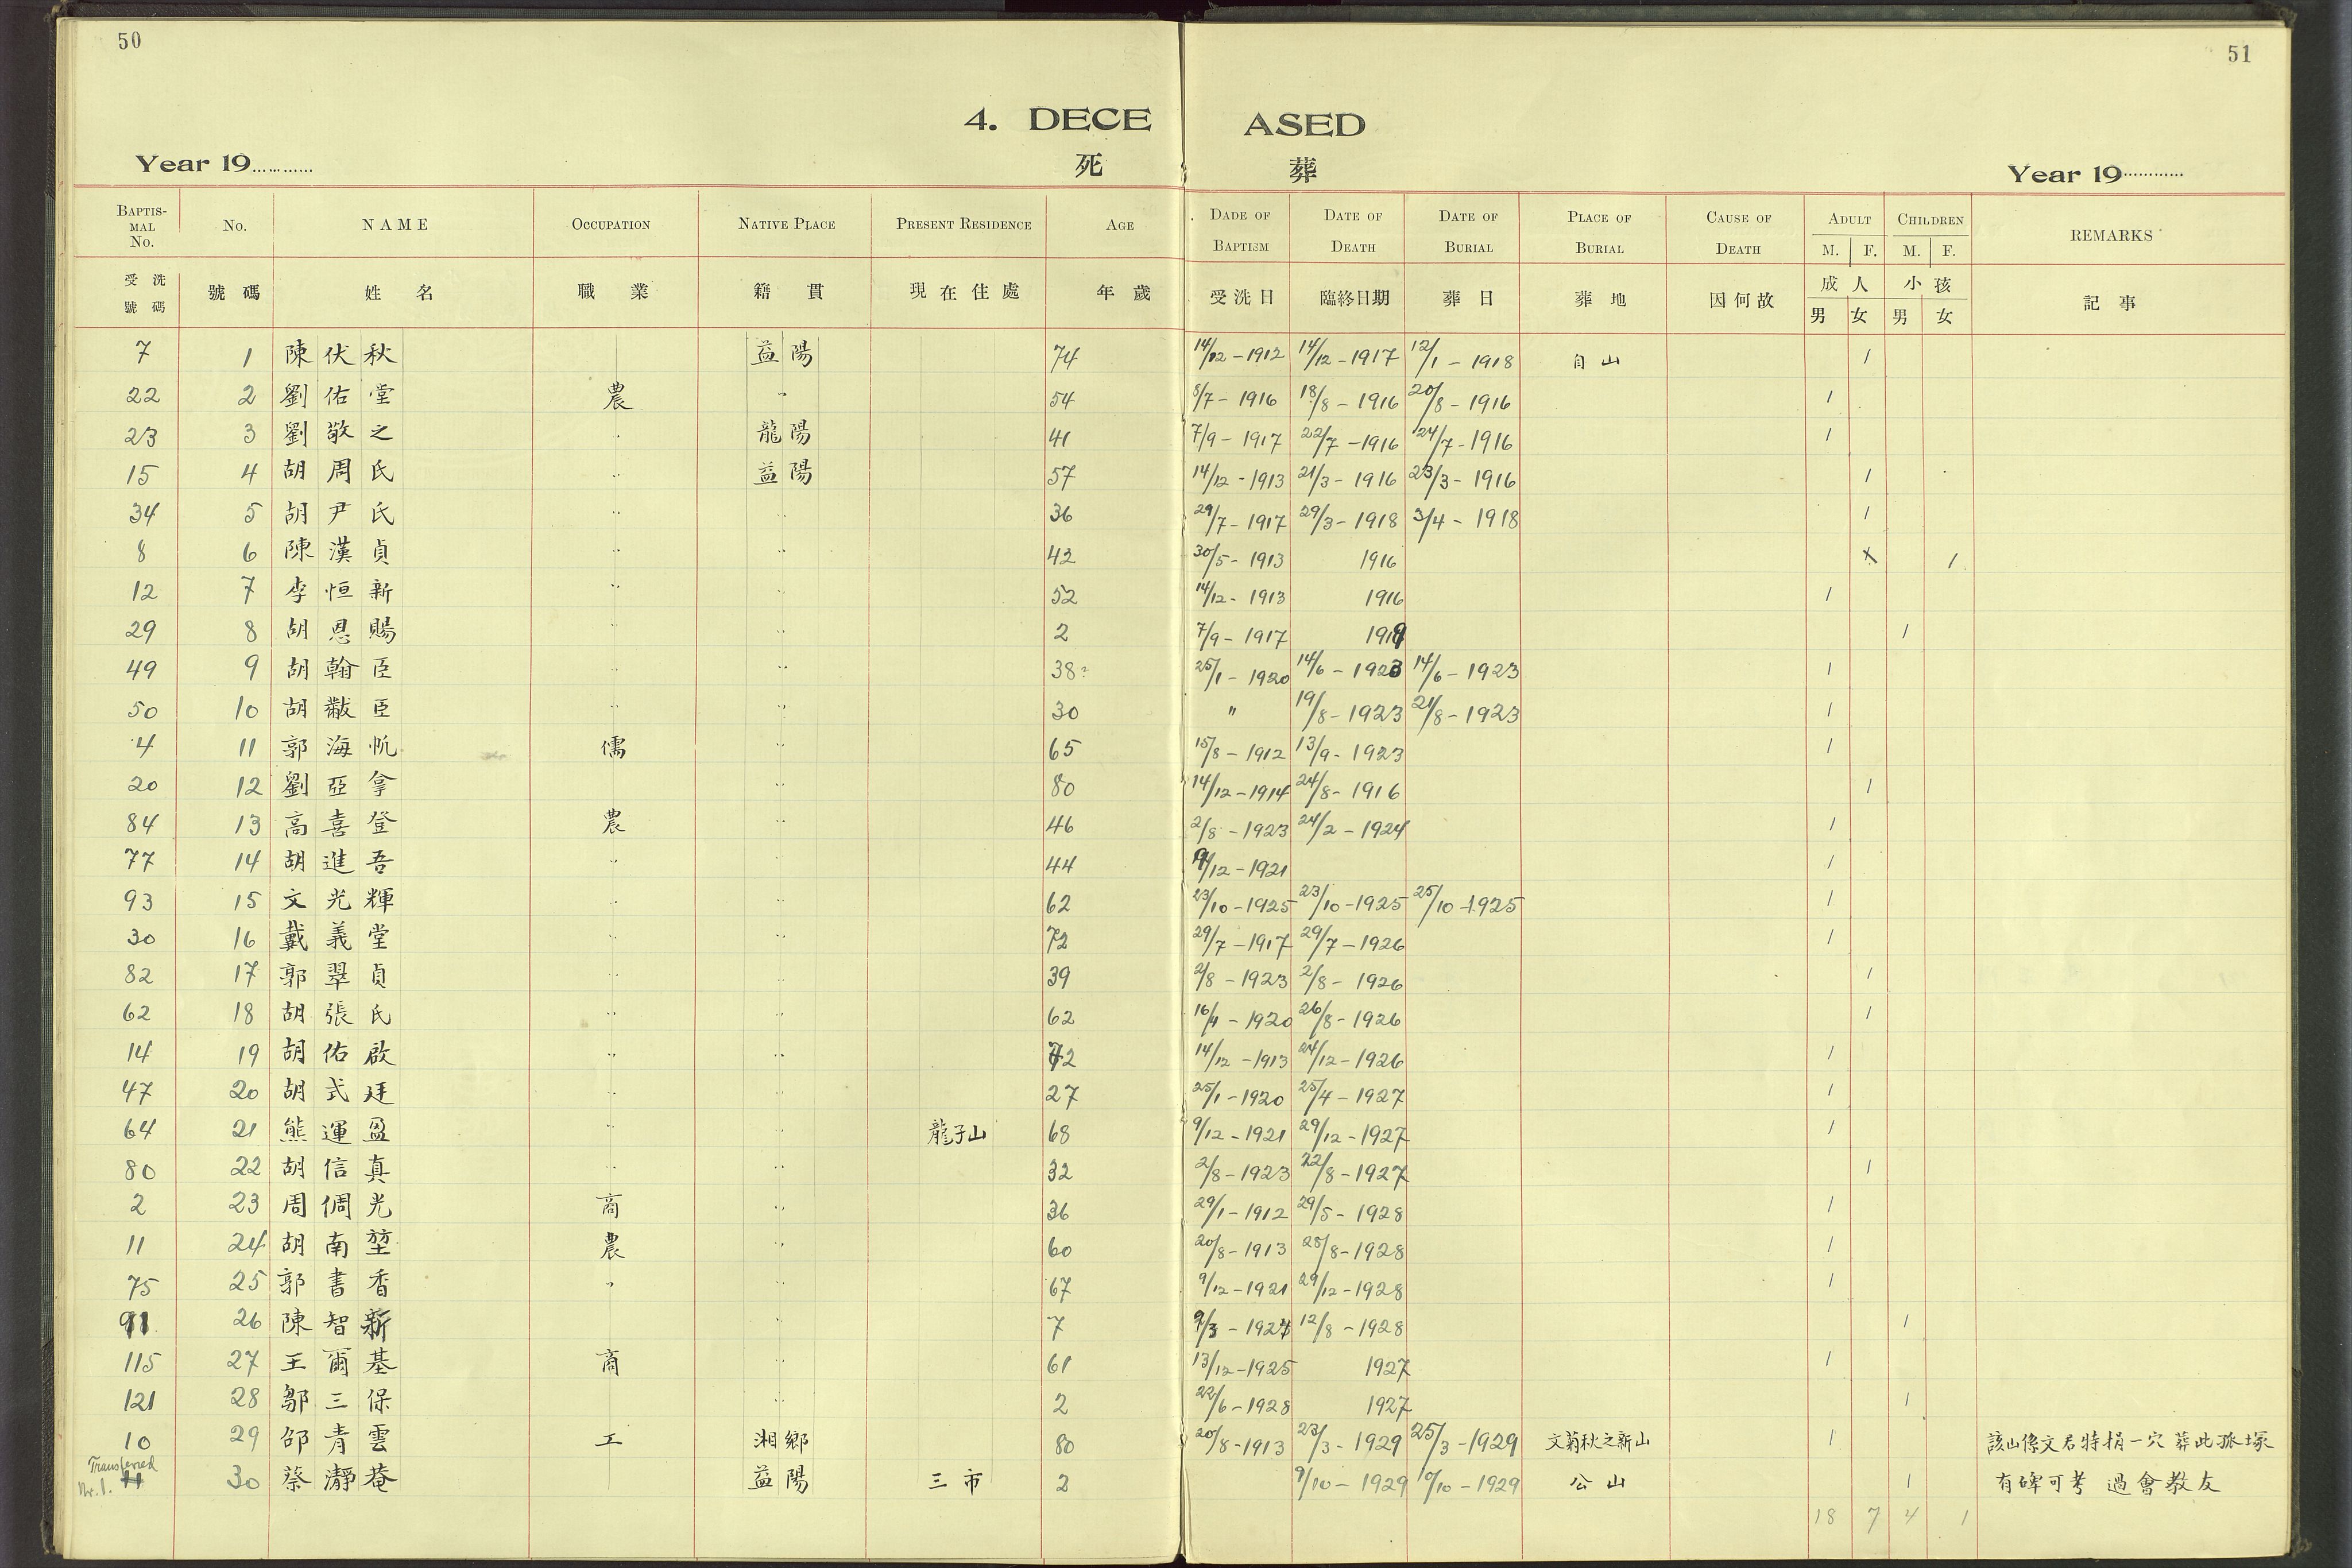 50
51
4. DECE ASED
Year 19............
死 葬
Year 19............
BAPTISMAL No. No. NAME OCCUPATION NATIVE PLACE PRESENT RESIDENCE AGE DADE OF BAPTISM DATE OF DEATH DATE OF BURIAL PLACE OF BURIAL CAUSE OF DEATH ADULT M. F. CHILDREN M. F. REMARKS
受洗號碼 號碼 姓名 職業 籍貫 現在住處 年歲 受洗日 臨終日期 葬日 葬地 因何故 成人 男 女 小孩 男 女 記事
7 1 陳伏秋 益陽 74 14/12-1912 14/12-1917 12/1-1918 自山 1
22 2 劉佑堂 農 〃 54 8/7-1916 18/8-1916 20/8-1916 1
23 3 劉敬之 〃 龍陽 41 7/9-1917 22/7-1916 24/7-1916 1
15 4 胡周氏 〃 益陽 57 14/12-1913 21/3-1916 23/3-1916 1
34 5 胡尹氏 〃 〃 36 29/7-1917 29/3-1918 3/4-1918 1
8 6 陳漢貞 〃 〃 42 30/5-1913 1916 1
12 7 李恒新 〃 〃 52 14/12-1913 1916 1
29 8 胡恩賜 〃 〃 2 7/9-1917 1919 1
49 9 胡翰臣 〃 〃 38? 25/1-1920 14/6-1923 14/6-1923 1
50 10 胡黻臣 〃 〃 30 〃 19/8-1923 21/8-1923 1
4 11 郭海帆 儒 〃 65 15/8-1912 13/9-1923 1
20 12 劉亞拿 〃 80 14/12-1914 24/8-1916 1
84 13 高喜登 農 〃 46 2/8-1923 24/2-1924 1
77 14 胡進吾 〃 〃 44 9/12-1921 1
93 15 文光輝 〃 〃 62 23/10-1925 23/10-1925 25/10-1925 1
30 16 戴義堂 〃 〃 72 29/7-1917 29/7-1926 1
82 17 郭翠貞 〃 〃 39 2/8-1923 2/8-1926 1
62 18 胡張氏 〃 〃 62 16/4-1920 26/8-1926 1
14 19 胡佑啟 〃 〃 72 14/12-1913 24/12-1926 1
47 20 胡式廷 〃 〃 27 25/1-1920 25/4-1927 1
64 21 熊運盈 〃 〃 龍子山 68 9/12-1921 29/12-1927 1
80 22 胡信真 〃 〃 32 2/8-1923 22/8-1927 1
2 23 周倜光 商 〃 36 29/1-1912 29/5-1928 1
11 24 胡南堃 農 〃 60 20/8-1913 28/8-1928 1
75 25 郭書香 〃 〃 67 9/12-1921 29/12-1928 1
91 26 陳智新 〃 7 9/3-1924 12/8-1928 1
115 27 王爾基 商 〃 61 13/12-1925 1927 1
121 28 鄒三保 〃 2 22/6-1928 1927 1
10 29 邵青雲 工 湘鄉 80 20/8-1913 23/3-1929 25/3-1929 文菊秋之新山 1 該山係文君特捐一穴葬此孤塚
Transferred Nr. 1. 11 30 蔡瀞菴 益陽 三市 2 9/10-1929 9/10-1929 公山 1 有碑可考 過會教友
18 7 4 1